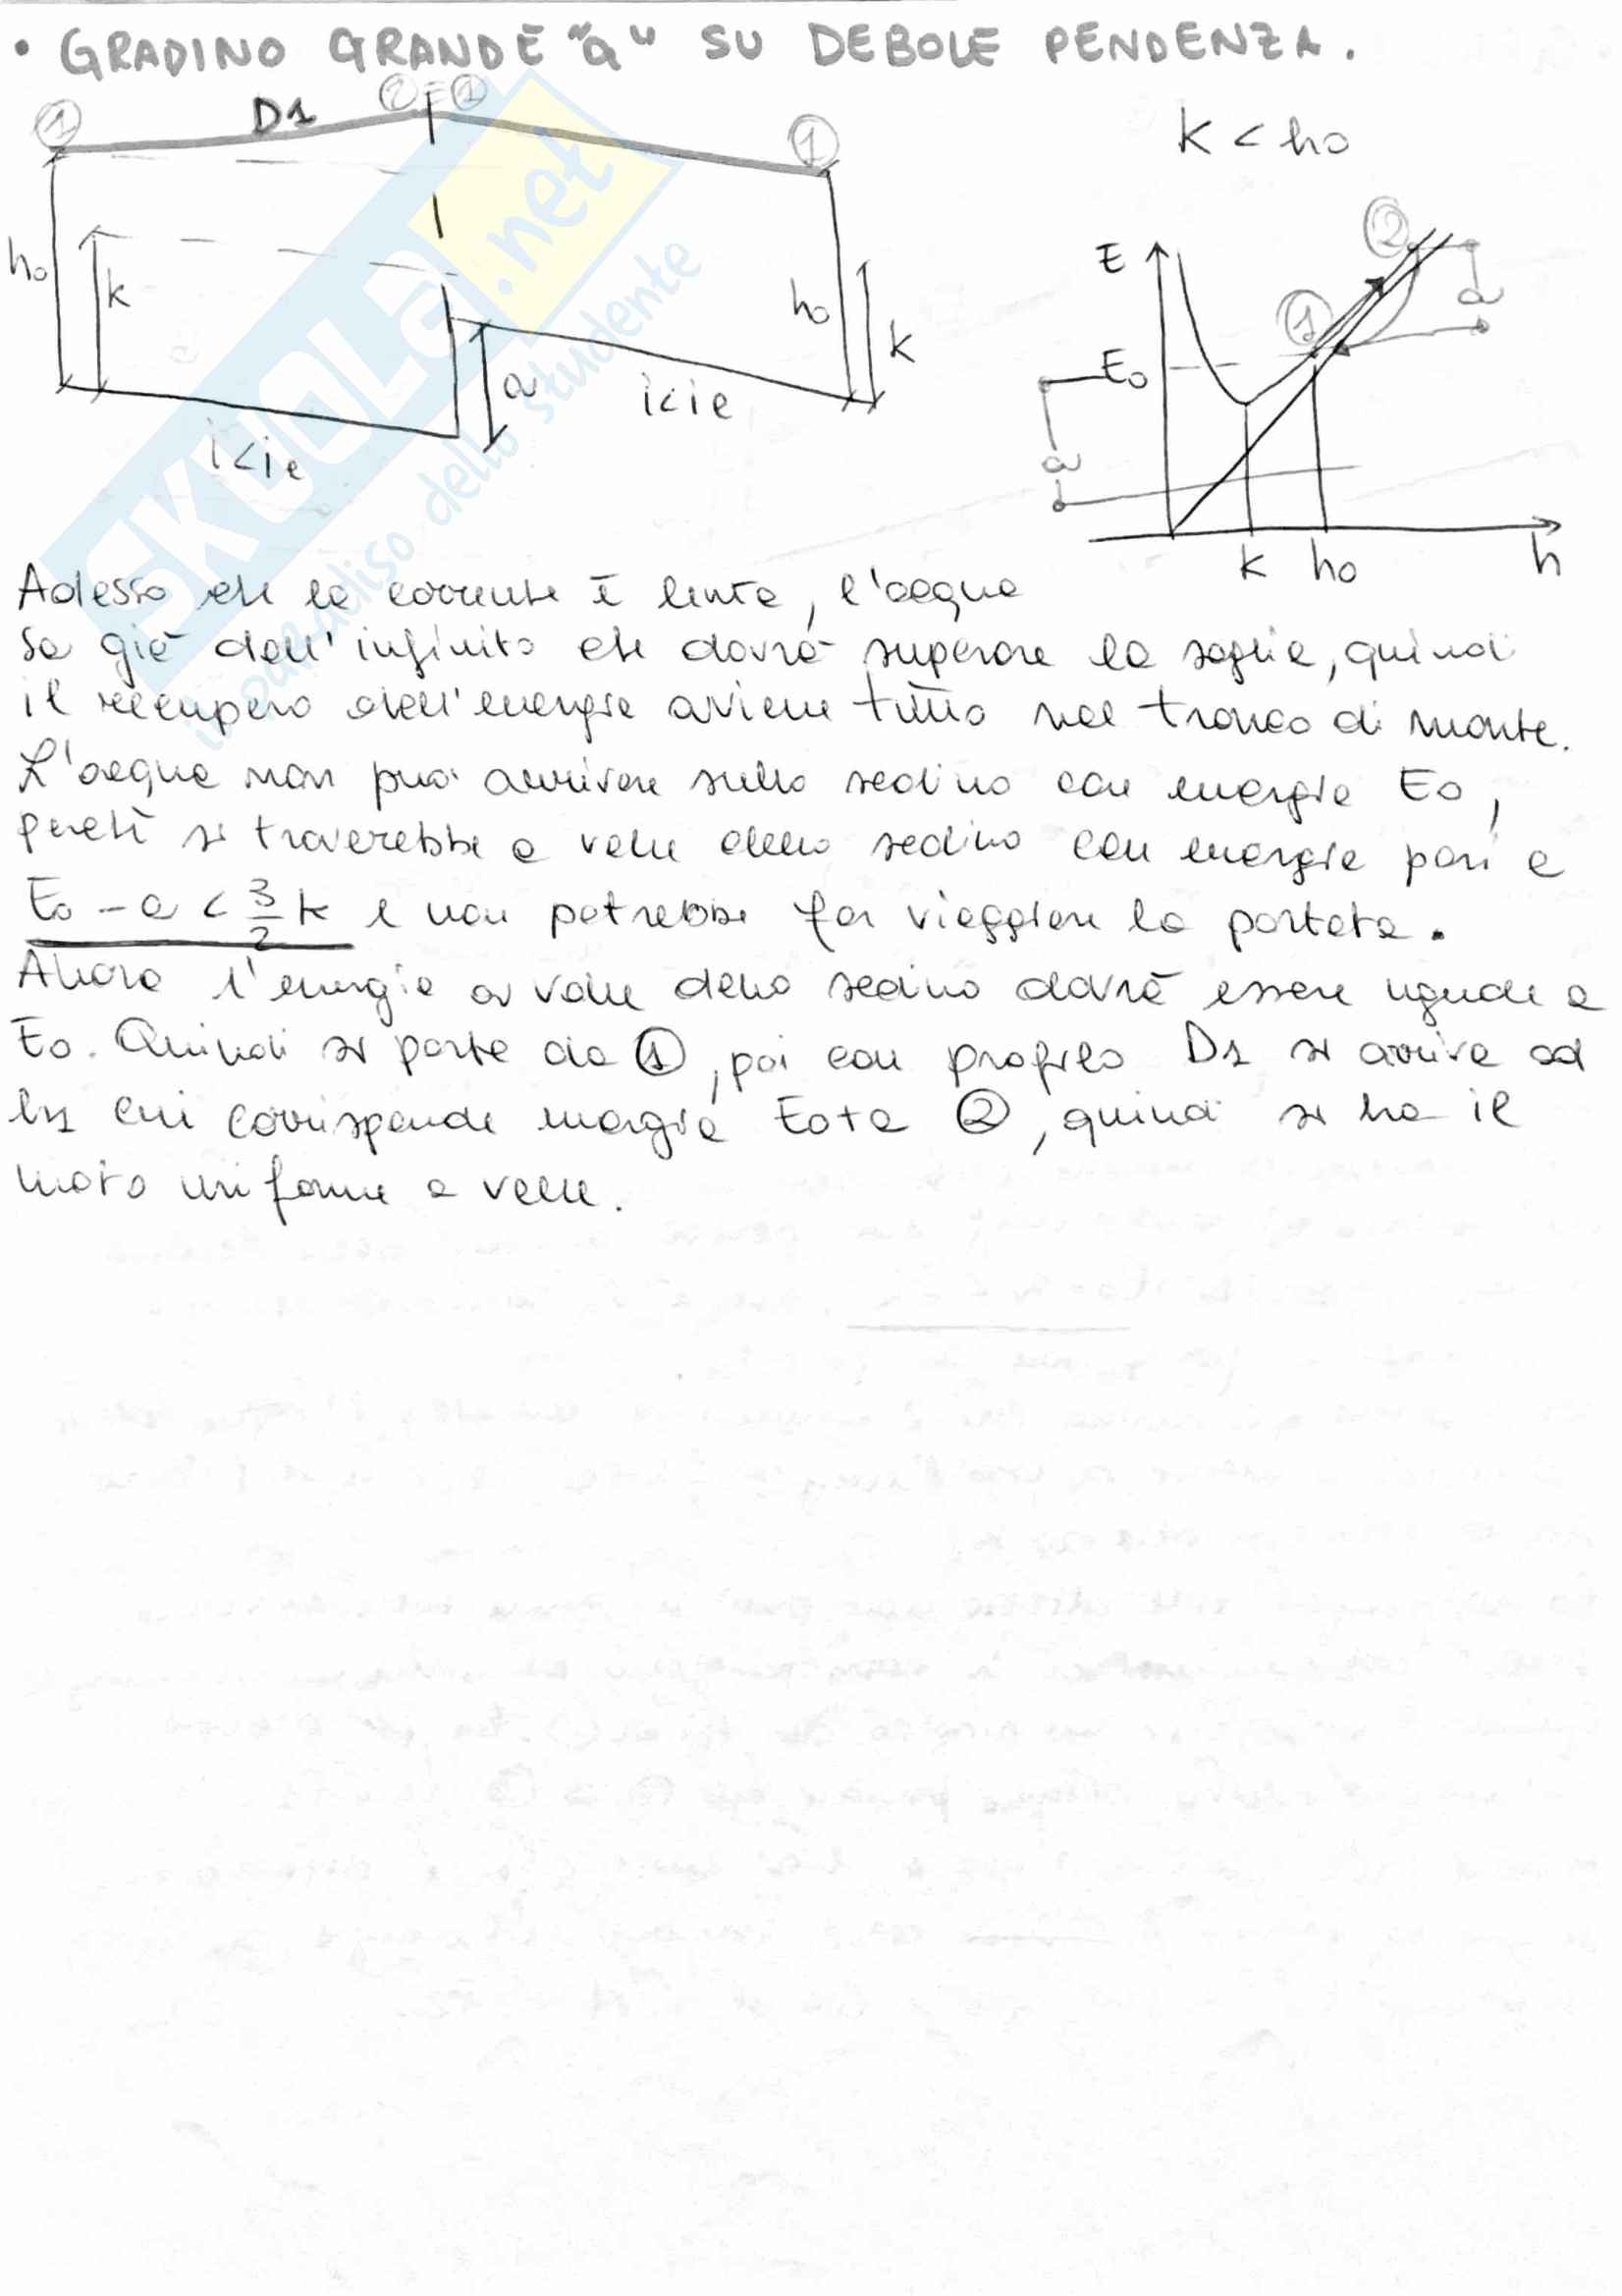 • GRADINO GRANDE "a" SU DEBOLE PENDENZA.
① D1 ②=① ①
K < h₀
h₀ K a h₀ K
i<ie i<ie
E ② a
① E₀
a
K h₀ h
SKUOLA.net
il paradiso dello studente
Adesso che la corrente è lenta, l'acqua
sa già dall'infinito che dovrà superare la soglia, quindi
il recupero dell'energia avviene tutto nel tronco di monte.
L'acqua non può arrivare sullo scalino con energia E₀,
perché si troverebbe a valle dello scalino con energia pari a
E₀ - a < 3/2 k e non potrebbe far viaggiare la portata.
Allora l'energia a valle dello scalino dovrà essere uguale a
E₀. Quindi si parte da ①, poi con profilo D1 si arriva ad
h₁ cui corrisponde energia E₀+a ②, quindi si ha il
moto uniforme a valle.